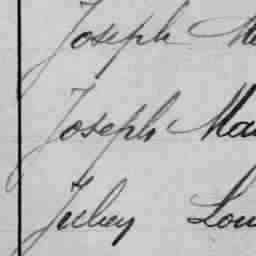 Joseph
Joseph Mau
Juley Lou